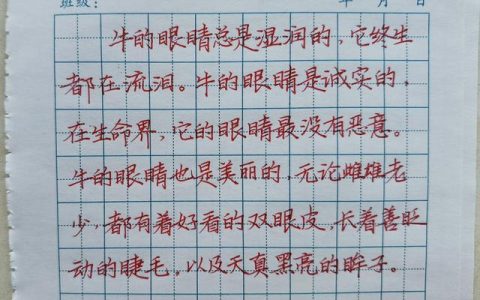 班级： 年 月 日
牛的眼睛总是湿润的，它终生
都在流泪。牛的眼睛是诚实的，
在生命界，它的眼睛最没有恶意。
牛的眼睛也是美丽的，无论雌雄老
少，都有着好看的双眼皮，长着善眨
动的睫毛，以及天真黑亮的眸子。